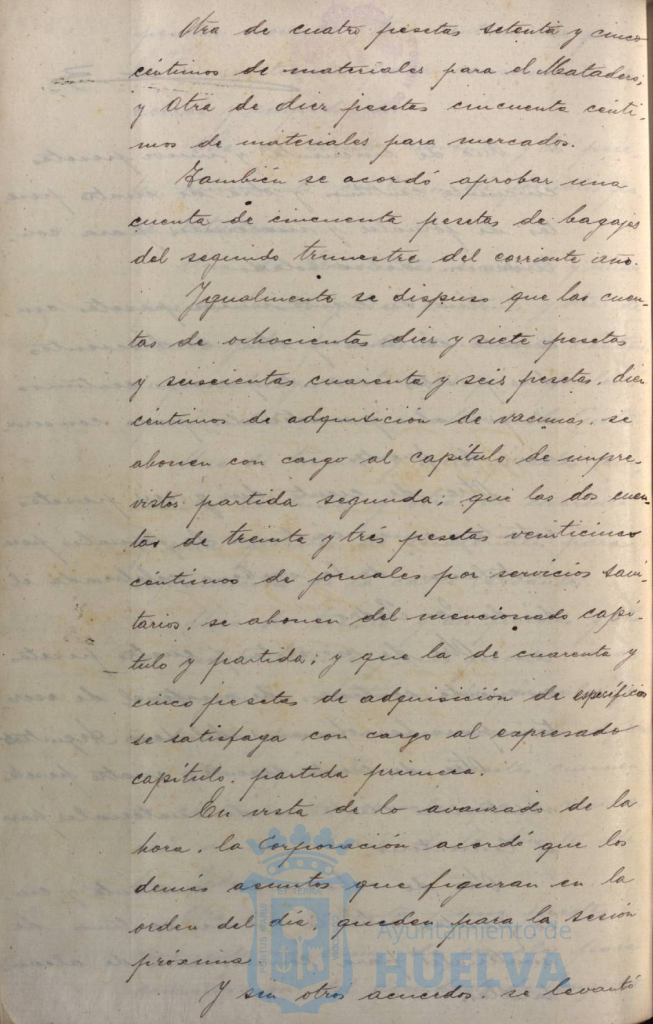 Otra de cuatro pesetas setenta y cinco
céntimos de materiales para el Matadero;
y Otra de diez pesetas cincuenta cénti-
mos de materiales para mercados.
También se acordó aprobar una
cuenta de cincuenta pesetas de bagajes
del segundo trimestre del corriente año.
Igualmente se dispuso que las cuen-
tas de ochocientas diez y siete pesetas
y seiscientas cuarenta y seis pesetas, diez
céntimos de adquisición de vacunas, se
abonen con cargo al capítulo de impre-
vistos partida segunda; que las dos cuen-
tas de treinta y tres pesetas veinticinco
céntimos de jornales por servicios sani-
tarios, se abonen del mencionado capí-
tulo y partida; y que la de cuarenta y
cinco pesetas de adquisición de específicos
se satisfaga con cargo al expresado
capítulo, partida primera.
En vista de lo avanzado de la
hora, la Corporación acordó que los
demás asuntos que figuran en la
orden del día, queden para la sesión
próxima.
Y sin otros acuerdos, se levantó
Ayuntamiento de
HUELVA